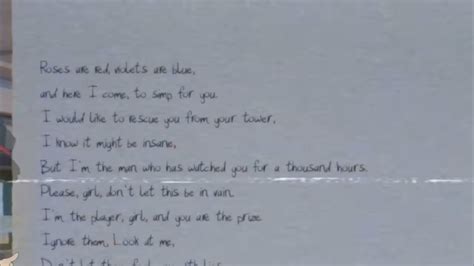 Roses are red, violets are blue,
and here I come, to simp for you.
I would like to rescue you from your tower,
I know it might be insane,
But I'm the man who has watched you for a thousand hours.
Please, girl, don't let this be in vain.
I'm the player, girl, and you are the prize
Ignore them, Look at me,
Don't let them